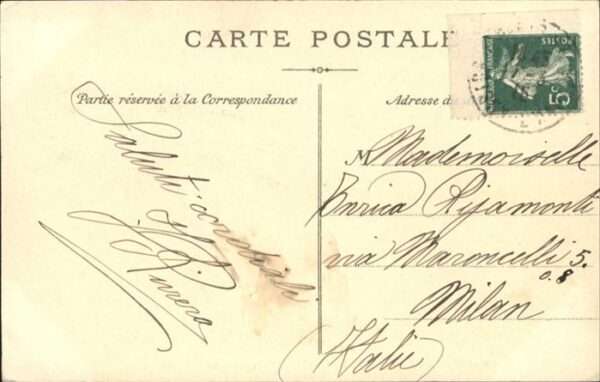 CARTE POSTALE
Partie réservée à la Correspondance
Adresse d
Saluti cordiali
M Mademoiselle
Enrica Rijamonti
via Maroncelli 5.
0.8
Milan
(Italie)
POSTES
5c